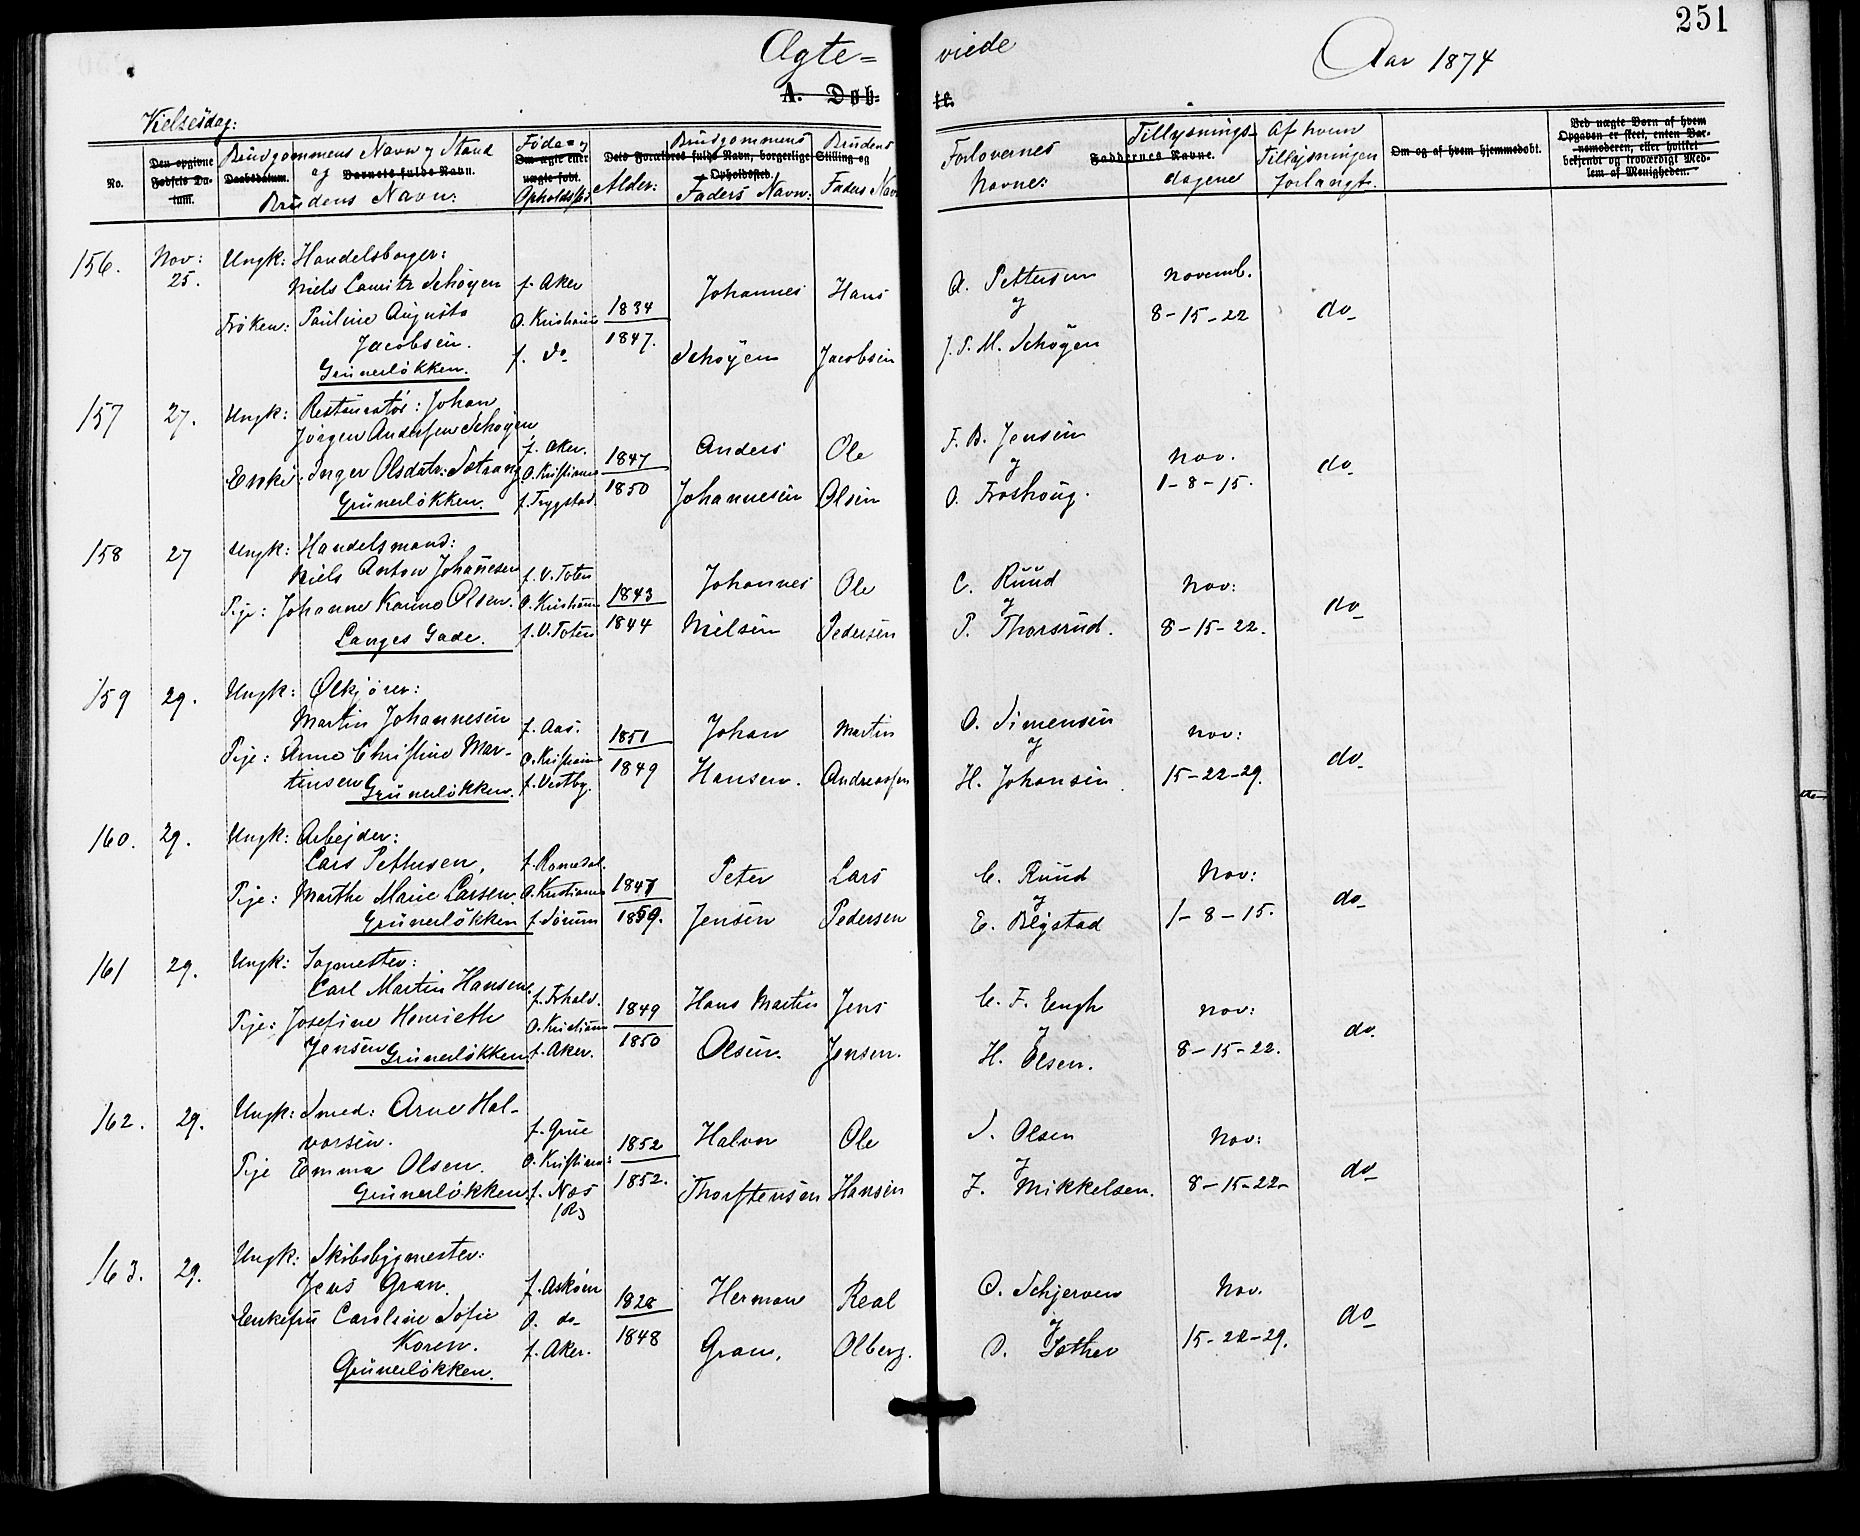 251
Ægte= viede Aar 1874
A. Døb- te.
Vielsesdag:
No.
Den opgivne Fødsels Datum.
Daabsdatum.
Brudgommens Navn og Stand
og
Barnets fulde Navn.
Brudens Navn:
Føde= og
Om ægte eller uægte født.
Opholdsted
Alder:
Dets Forældres fulde Navn, borgerlige Stilling og Opholdssted.
Brudgommens
Faders Navn:
Brudens
Faders Navn
Forlovernes
Navne:
Faddernes Navne.
Tillysnings-
dagene
Af hvem
Tillysningen
forlangt.
Om og af hvem hjemmedøbt.
Ved uægte Børn af hvem
Opgaven er skeet, enten Bar-
nemoderen, eller hvilket
bekjendt og troværdigt Med-
lem af Menigheden.
156. Nov: 25. Ungk: Handelsborger:
Niels Lauritz Schøyen f. Aker
Frøken: Pauline Augusta O. Kristiania
Jacobsen. f. do
Grünerløkken.
1834
1847.
Johannes Schøyen
Hans Jacobsen
A. Pettersen
og
J. P. M. Schøyen
novemb.
8-15-22
do
157 27. Ungk: Restauratør: Johan
Jørgen Andersen Schøyen f. Aker.
Enke: Inger Olsdatr: Sætrang O. Kristiania
Grünerløkken. f. Trygstad.
1847
1850
Anders Johannesen
Ole Olsen
F. B. Jensen
og
O. Froshoug.
nov.
1-8-15.
do
158 27 Ungk: Handelsmand:
Niels Anton Johannesen f. V. Toten
Pige: Johanne Karina Olsen. O. Kristiania
Langes Gade. f. V. Toten
1843
1844
Johannes Nielsen
Ole Pedersen
C. Ruud
og
P. Thorsrud.
Nov:
8-15-22.
do
159 29. Ungk: Ølkjører:
Martin Johannesen f. Aas.
Pige: Anna Christine Mar- O. Kristiania
tinsen Grünerløkken. f. Vestby.
1851
1849
Johan Hansen.
Martin Andreassen
O. Simensen
og
H. Johansen
nov:
15-22-29.
do
160. 29. Ungk: Arbejder:
Lars Pettersen, f. Romedal.
Pige: Marthe Marie Larsen. O. Kristiania
Grünerløkken f. Sørum
1847
1859.
Peter Jensen
Lars Pedersen
C. Ruud
og
E. Blystad
Nov:
1-8-15.
do
161 29. Ungk: Sagmester:
Carl Martin Hansen, f. Frhald.
Pige: Josefine Henriette O. Kristiania
Jensen Grünerløkken f. Aker.
1849
1850
Hans Martin Olsen.
Jens Jensen.
C. F. Engh
og
H. Olsen.
nov:
8-15-22.
do.
162. 29. Ungk: Smed: Arne Hal-
vorsen. f. Grue
Pige Emma Olsen. O. Kristiania:
Grünerløkken f. Næs (R)
1852
1852.
Halvor Thorstensen
Ole Hansen
S. Olsen
og
J. Mikkelsen.
Nov:
8-15-22-
do
163. 29. Ungk: Skibsbygmester:
Jens Gran. f. Askøen
Enkefru Caroline Sofie O. do
Koren. f. Aker.
Grünerløkken.
1828
1848
Herman Gran,
Real Olberg.
O. Schjerven
og
O. Sother
Nov.
15-22-29.
do